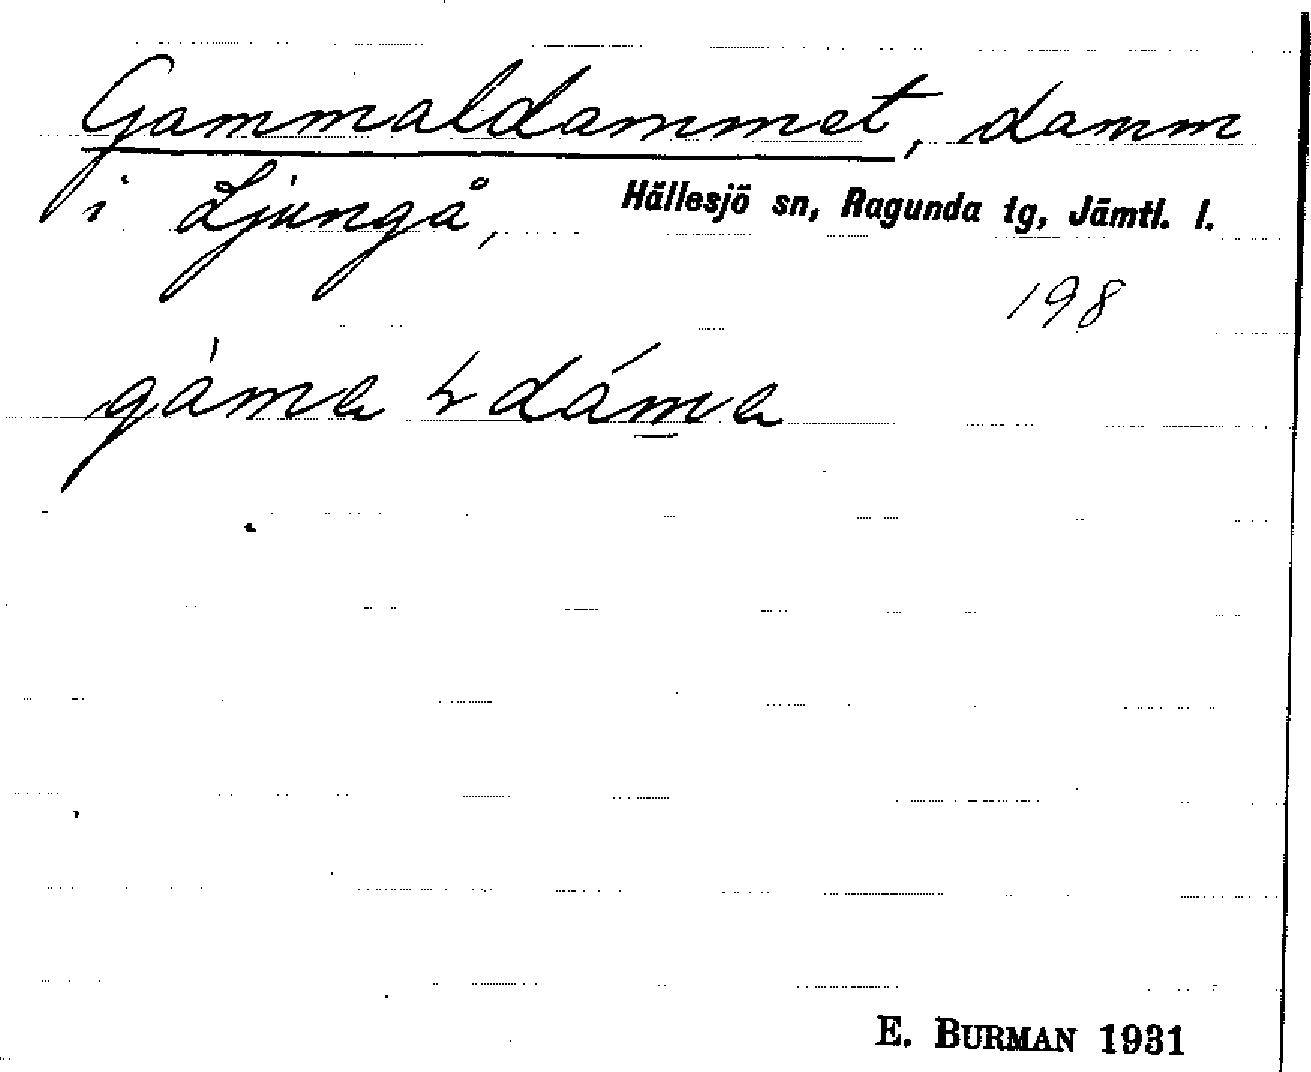 Gammaldammet, damm
i Ljungå, Hällesjö sn, Ragunda tg, Jämtl. l.
198
E. BURMAN 1931